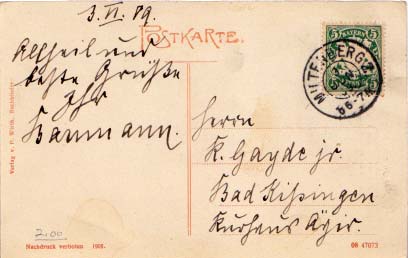 3. VI. 09.
POSTKARTE.
und
beste Grüße
Ihr
Baumann.
BAYERN
5 5
MILTENBERG 2
Herrn
K. Gayde jr.
Bad Kissingen
Kurhaus Ägir.
Verlag v. H. Wirth, Buchbinder.
2.00
Nachdruck verboten 1908.
08 47073